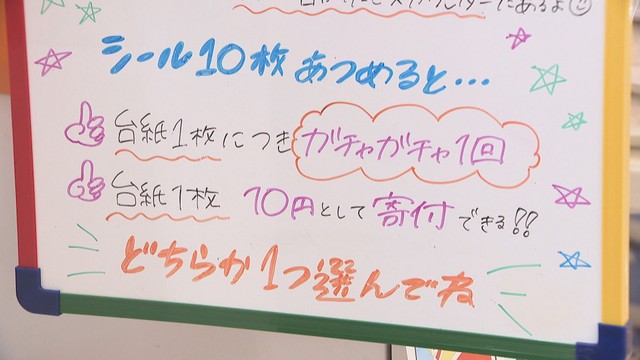 にあるよ
シール10枚あつめると…
台紙1枚につきガチャガチャ1回
台紙1枚 10円として寄付できる!!
どちらか1つ選んでね